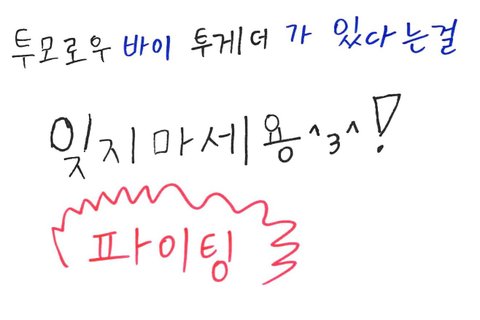 투모로우 바이 투게더 가 있다는걸
잊지마세용^3^!
파이팅